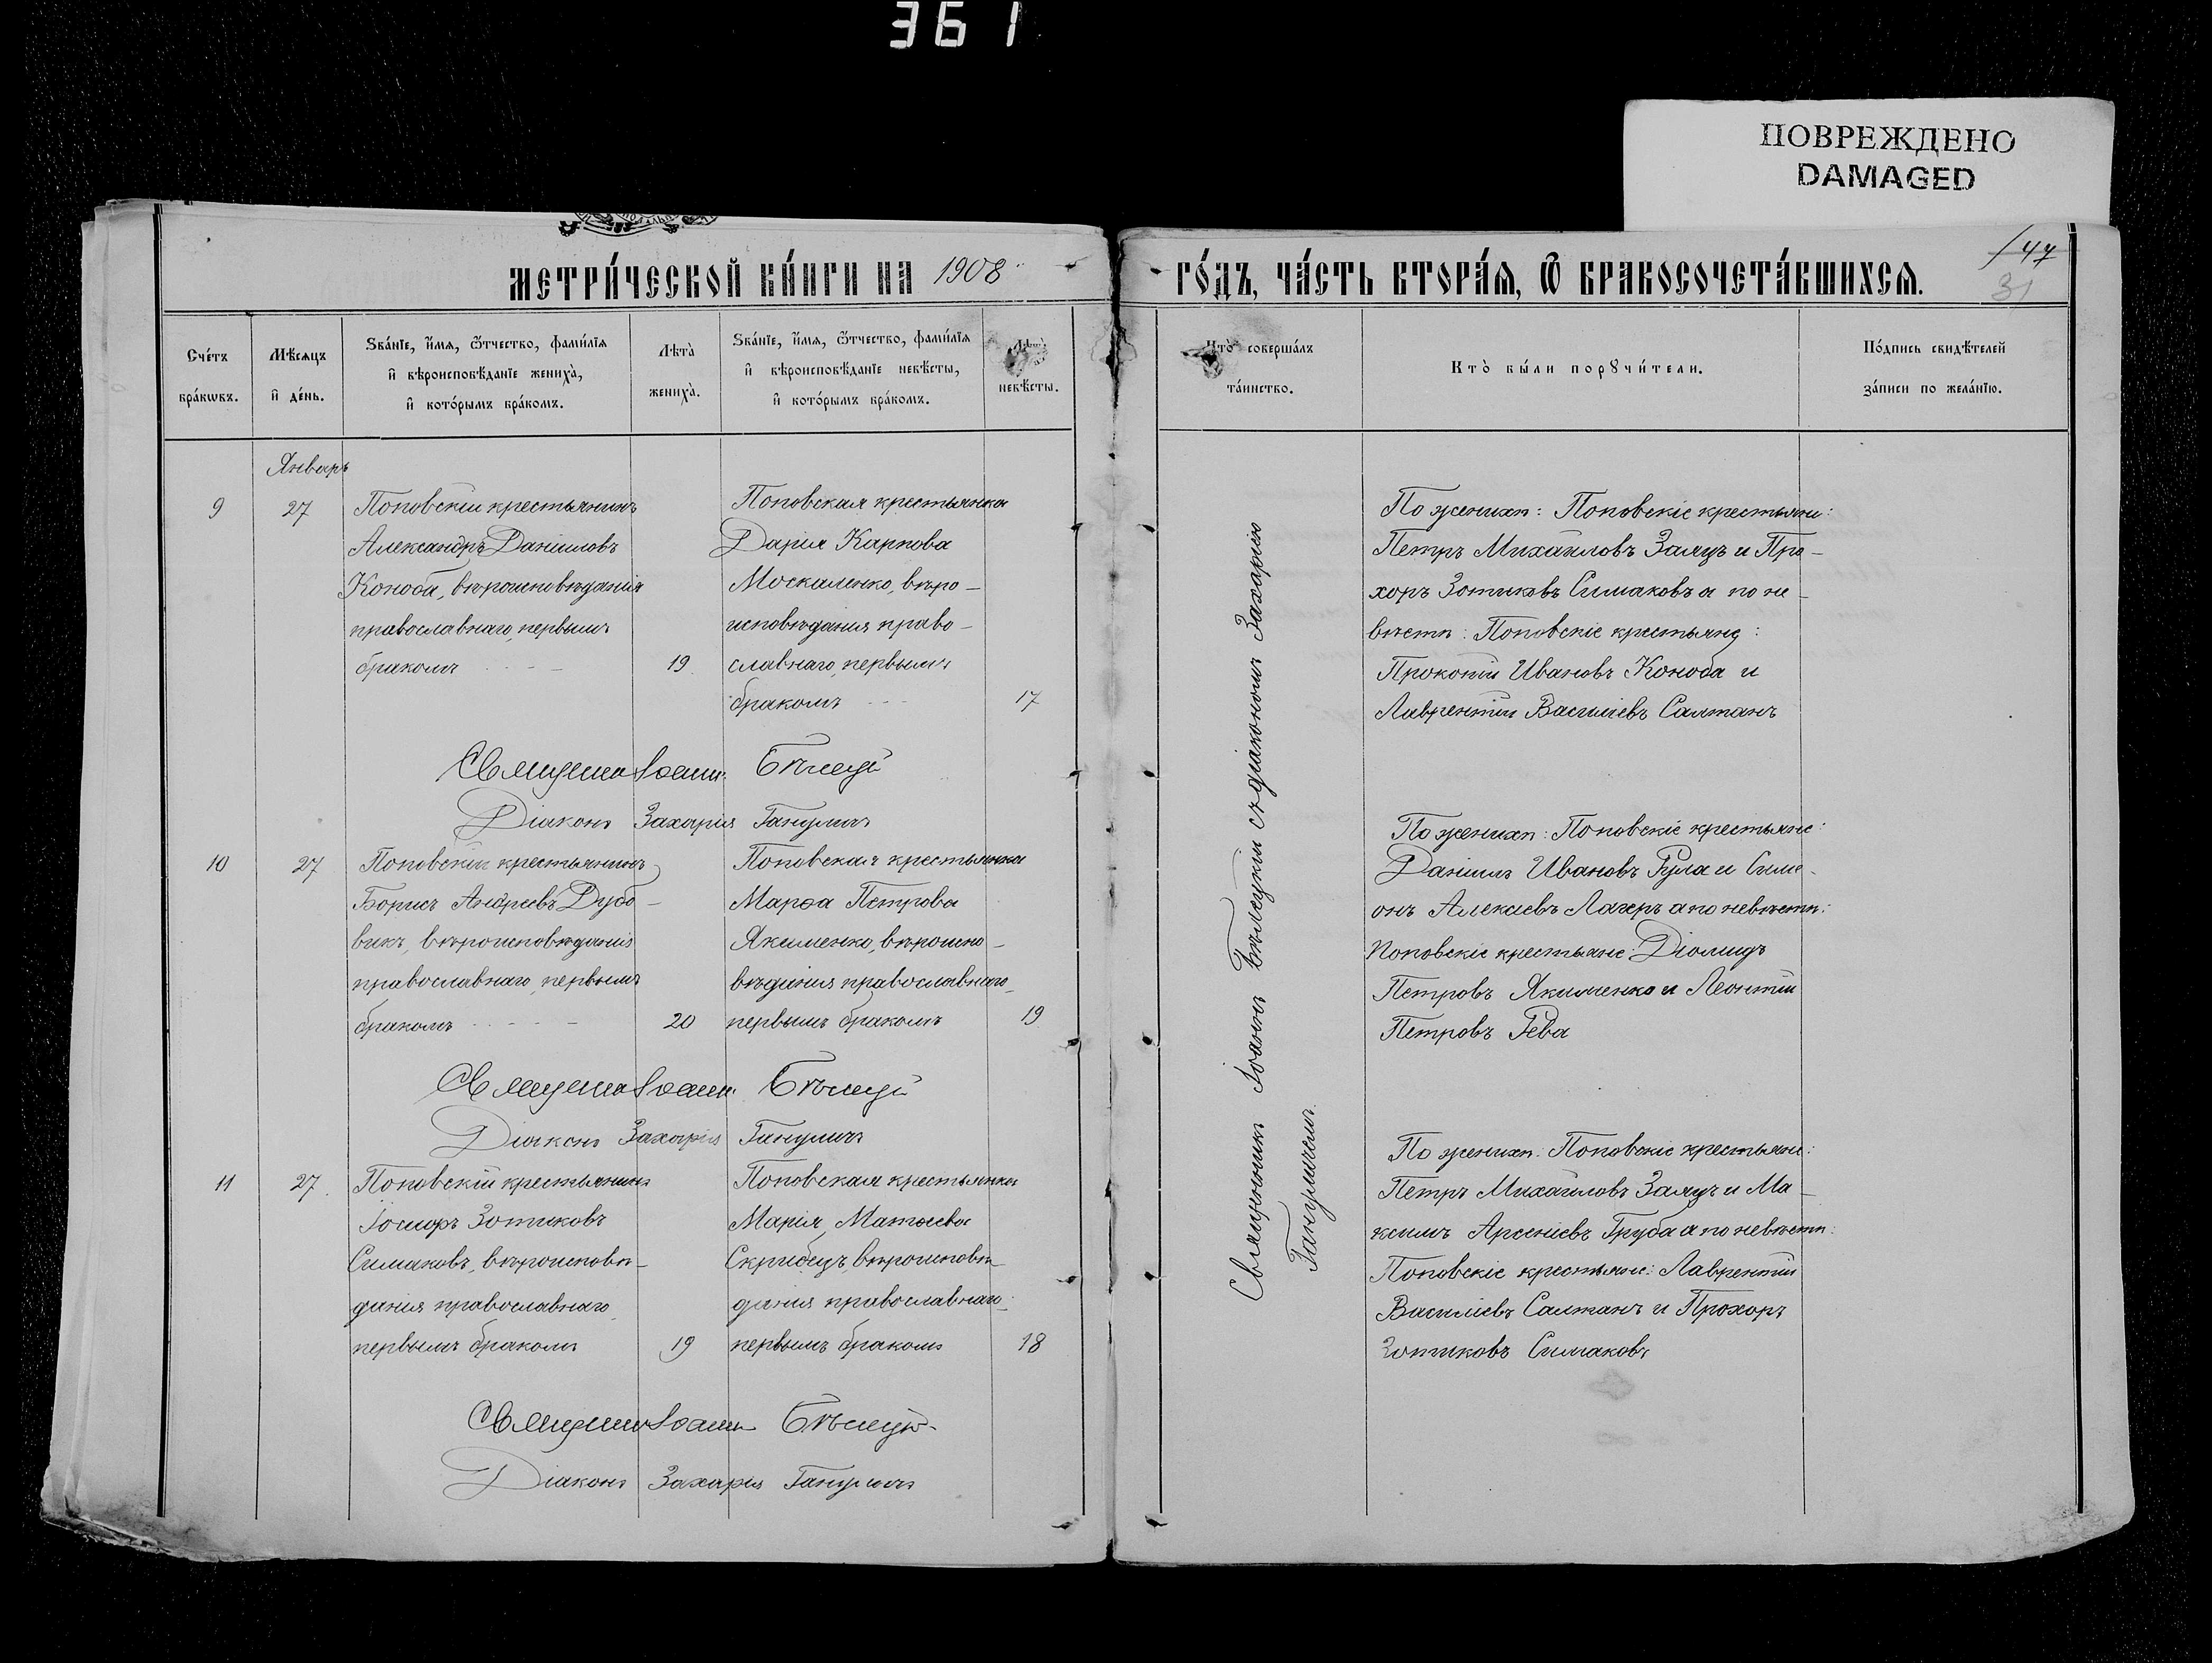 361
ПОВРЕЖДЕНО
DAMAGED
МЕТРИ́ЧЕСКОЙ КНИ́ГИ НА 1908
ГО́ДЪ, ЧА́СТЬ ВТОРА́Ѧ, Ѿ БРАКОСОЧЕТА́ВШИХСѦ.
147
31
Сче́тъ бра́кѡвъ.
Мѣ́сѧцъ и҆ де́нь.
Ѕва́нїе, и҆́мѧ, ѻ҆́тчество, фами́лїѧ и҆ вѣроисповѣ́данїе жениха̀, и҆ кото́рымъ бра́комъ.
Лѣта̀ жениха̀.
Ѕва́нїе, и҆́мѧ, ѻ҆́тчество, фами́лїѧ и҆ вѣроисповѣ́данїе невѣ́сты, и҆ кото́рымъ бра́комъ.
невѣ́сты.
Кто̀ соверша́лъ та́инство.
Кто̀ бы́ли порꙋчи́тели.
По́дпись свидѣ́телей за́писи по жела́нїю.
Январь
9
27
Поповскій крестьянинъ
Александръ Даніиловъ
Коноба, вѣроисповѣданія
православнаго, первымъ
бракомъ
19
Поповская крестьянка
Дарія Карпова
Москаленко, вѣро-
исповѣданія право-
славнаго, первымъ
бракомъ
17
По женихѣ: Поповскіе крестьяне:
Петръ Михайловъ Заяцъ и Про-
хоръ Зотиковъ Симаковъ а по не-
вѣстѣ: Поповскіе крестьяне:
Прокопій Ивановъ Коноба и
Лаврентій Василіевъ Салтанъ
Священникъ Іоаннъ Бѣлецкій
Діаконъ Захарія Ганулич
10
27
Поповскій крестьянинъ
Борисъ Андреевъ Дубо-
викъ, вѣроисповѣданія
православнаго, первымъ
бракомъ
20
Поповская крестьянка
Марѳа Петрова
Якименко, вѣроиспо-
вѣданія православнаго,
первымъ бракомъ
19
По женихѣ: Поповскіе крестьяне:
Даніилъ Ивановъ Гула и Симе-
онъ Алексіевъ Лагеръ а по невѣстѣ:
Поповскіе крестьяне: Діомидъ
Петровъ Якименко и Леонтій
Петровъ Рева
Священникъ Іоаннъ Бѣлецкій
Діаконъ Захарія Ганулич
11
27.
Поповскій крестьянинъ
Іосифъ Зотиковъ
Симаковъ, вѣроисповѣ-
данія православнаго,
первымъ бракомъ
19
Поповская крестьянка
Марія Матѳіева
Скрибецъ, вѣроисповѣ-
данія православнаго,
первымъ бракомъ
18
По женихѣ: Поповскіе крестьяне:
Петръ Михайловъ Заяцъ и Ма-
ксимъ Арсеніевъ Груба а по невѣстѣ:
Поповскіе крестьяне: Лаврентій
Василіевъ Салтанъ и Прохоръ
Зотиковъ Симаковъ
Священникъ Іоаннъ Бѣлецкій
Діаконъ Захарія Ганулич
Священникъ Іоаннъ Бѣлецкій съ діакономъ Захаріею
Гануличемъ.